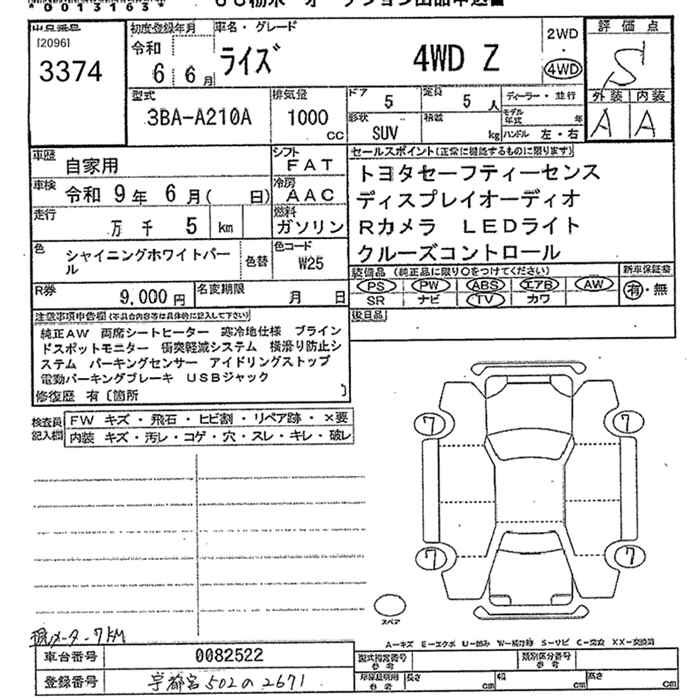 *0013163*
出品番号
[2096]
3374
初度登録年月
令和
6 6月
車名・グレード
ライズ 4WD Z
2WD
・
4WD
評価点
S
外装 内装
A A
型式
3BA-A210A
排気量
1000
cc
ドア 5
定員 5 人
形状 SUV
積載 kg
ディーラー・並行
モデル年式 年
ハンドル 左・右
車歴 自家用
シフト FAT
車検 令和 9年 6月( 日)
冷房 AAC
走行 万 千 5 km
燃料 ガソリン
色 シャイニングホワイトパール
色替
色コード W25
R券 9,000円
名変期限 月 日
セールスポイント(正常に機能するものに限ります)
トヨタセーフティーセンス
ディスプレイオーディオ
Rカメラ LEDライト
クルーズコントロール
装備品 (純正品に限り○をつけてください)
PS PW ABS エアB AW
SR ナビ TV カワ
新車保証書
有・無
後日品
注意事項申告欄(不具合内容等は具体的に記入して下さい)
純正AW 両席シートヒーター 寒冷地仕様 ブライン
ドスポットモニター 衝突軽減システム 横滑り防止シ
ステム パーキングセンサー アイドリングストップ
電動パーキングブレーキ USBジャック
修復歴 有〔箇所 〕
検査員記入欄
FW キズ・飛石・ヒビ割・リペア跡・×要
内装 キズ・汚レ・コゲ・穴・スレ・キレ・破レ
7 7
7 7
スペア
メーター7KM
A-キズ E-エクボ U-凹み W-補修跡 S-サビ C-腐食 XX-交換済
車台番号 0082522
登録番号 宇都宮502の2671
型式指定番号 参考
類別区分番号 参考
参考 長さ cm 幅 cm 高さ cm